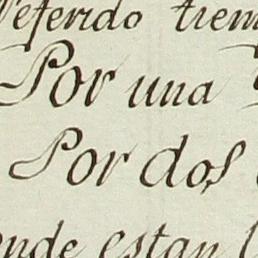 Referido tiem
Por una
Por dos
onde estan l